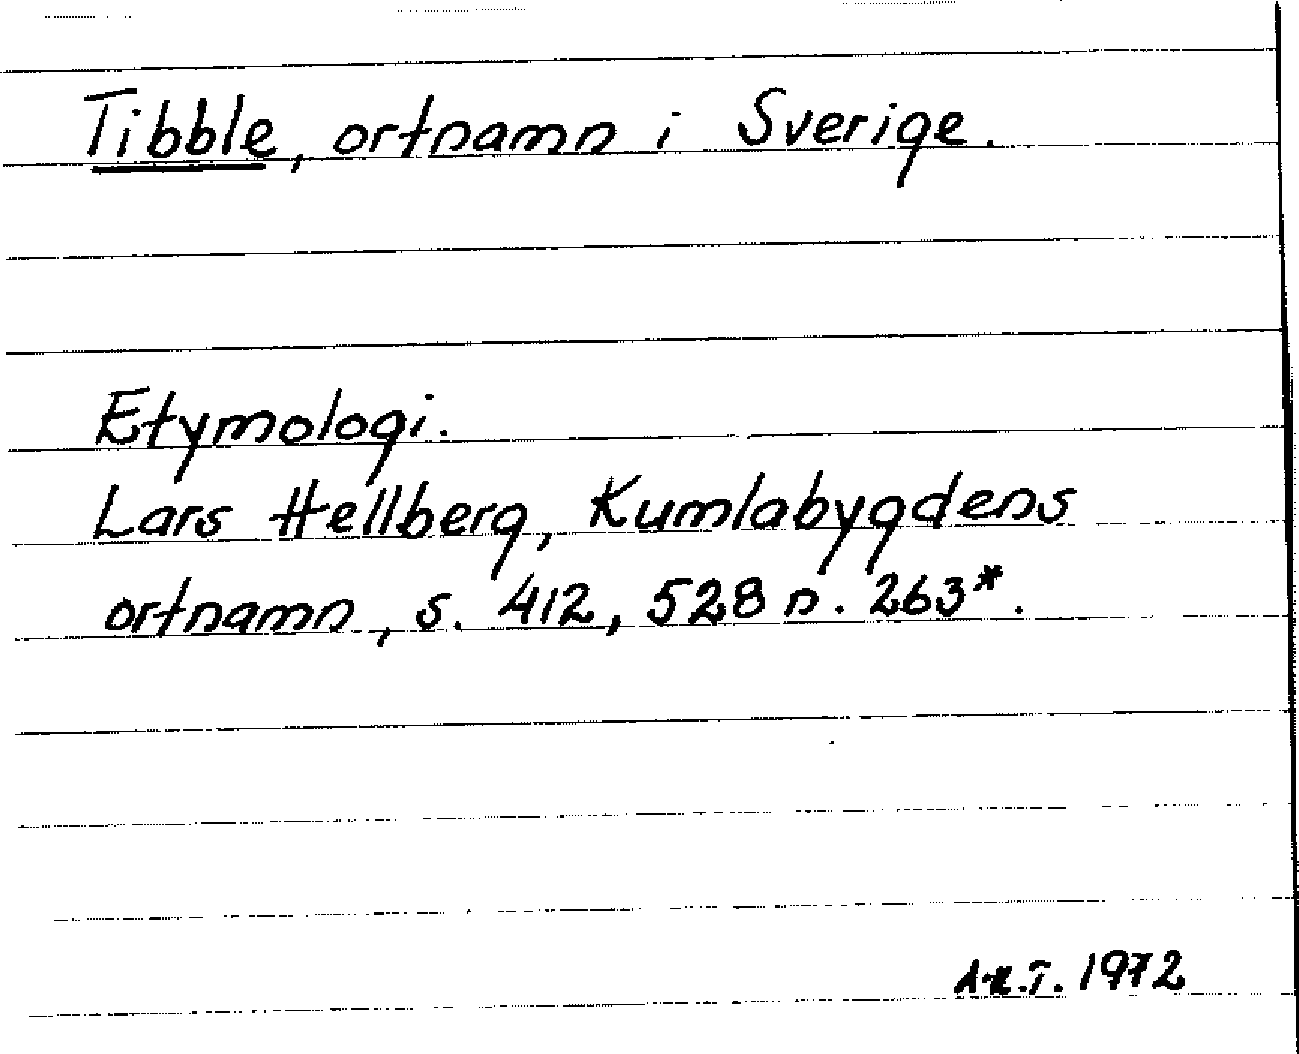 Tibble, ortnamn i Sverige.
Etymologi.
Lars Hellberg, Kumlabygdens
ortnamn, s. 412, 528 n. 263*.
1972